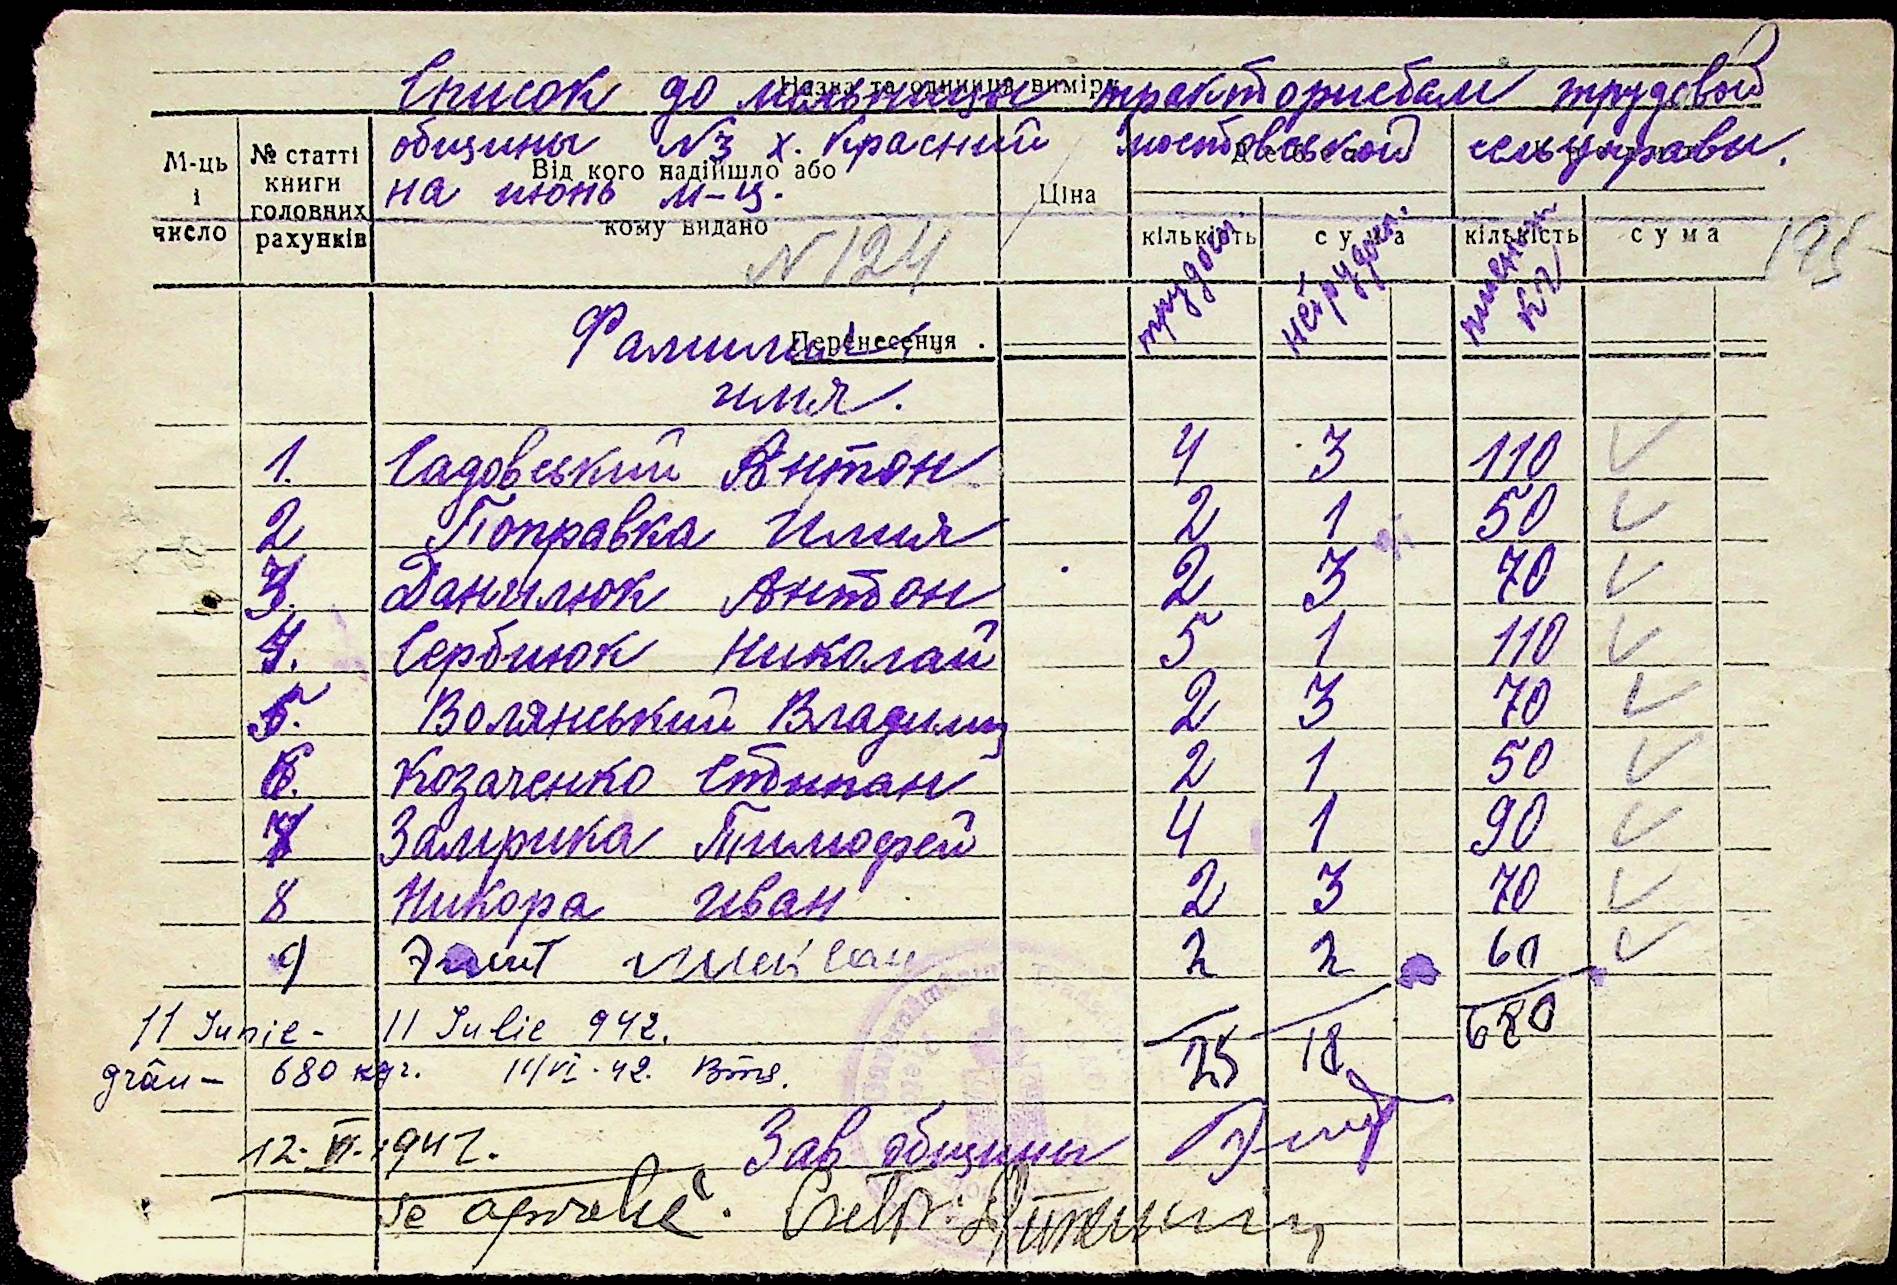 Список до мельницы трактористам трудовой
Назва та одиниця виміру
общины №3 х. Красний мостовськой сельуправы.
на июнь м-ц.
М-ць і число
№ статті книги головних рахунків
Від кого надійшло або кому видано
Ціна
кількість сума кількість сума
трудосп. нетрудосп. кг
N 124
195
Перенесення
Фамилия
имя.
1. Садовський Антон 4 3 110
2 Поправка Илия 2 1 50
3. Данилюк Антон 2 3 70
4. Сербинюк Николай 5 1 110
5. Волянський Владимир 2 3 70
6. Козаченко Степан 2 1 50
7 Замрика Тимофей 4 1 90
8 Никора Иван 2 3 70
9 2 2 60
25 18 680
11 Iunie - 11 Iulie 942.
grâu - 680 кгр. 11/VI-42.
12.VI.1942.
Зав общины
Se aprobă.